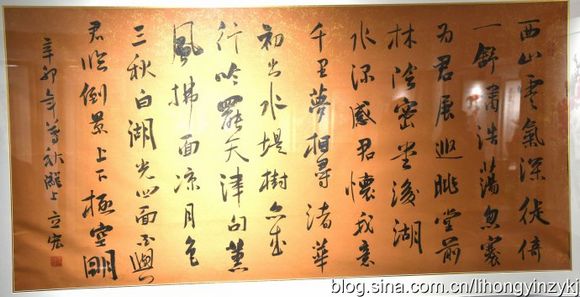 西山雲氣深徙倚
一舒嘯浩蕩忽褰
为君展遐眺堂前
林陰密堂後湖
水深感君懷我意
千里夢相尋渚華
初出水堤樹亦成
行吟罷天津句薰
風拂面涼月色
三秋白湖光四面平與
君臨倒景上下極空明
辛卯年 上立宏
blog.sina.com.cn/lihongyinzykj